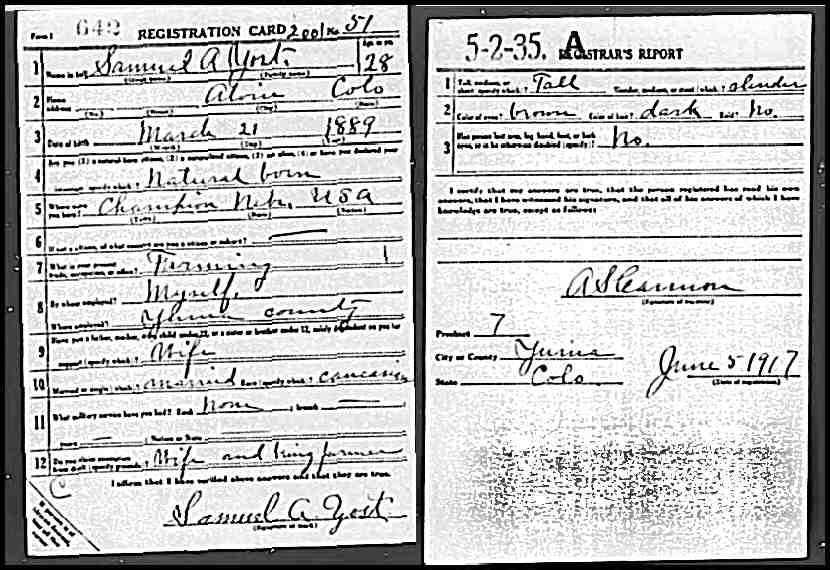 Form 1 642 REGISTRATION CARD 2001 No 51
1 Name in full Samuel A Yost Age, in yrs. 28
(Given name) (Family name)
2 Home address Alvin Colo
(No.) (Street) (City) (State)
3 Date of birth March 21 1889
(Month) (Day) (Year)
Are you (1) a natural born citizen, (2) a naturalized citizen, (3) an alien, (4) or have you declared your
4 intention (specify which)? Natural born
5 Where were you born? Champion Neb. USA
(Town) (State) (Nation)
6 If not a citizen, of what country are you a citizen or subject? —
7 What is your present trade, occupation, or office? Farming 1
8 By whom employed? Myself,
Where employed? Yuma county
Have you a father, mother, wife, child under 12, or a sister or brother under 12, solely dependent on you for
9 support (specify which)? Wife
10 Married or single (which)? married Race (specify which)? caucasian
11 What military service have you had? Rank None ; branch —
years — ; Nation or State —
12 Do you claim exemption from draft (specify grounds)? Wife and being farmer
I affirm that I have verified above answers and that they are true.
C
Samuel A Yost
(Signature or mark)
5-2-35. A REGISTRAR'S REPORT
1 Tall, medium, or short (specify which)? Tall Slender, medium, or stout (which)? slender
2 Color of eyes? brown Color of hair? dark Bald? No.
3 Has person lost arm, leg, hand, foot, or both eyes, or is he otherwise disabled (specify)? No.
I certify that my answers are true, that the person registered has read his own
answers, that I have witnessed his signature, and that all of his answers of which I have
knowledge are true, except as follows:
(Signature of registrar)
Precinct 7
City or County Yuma
State Colo. June 5 1917
(Date of registration)